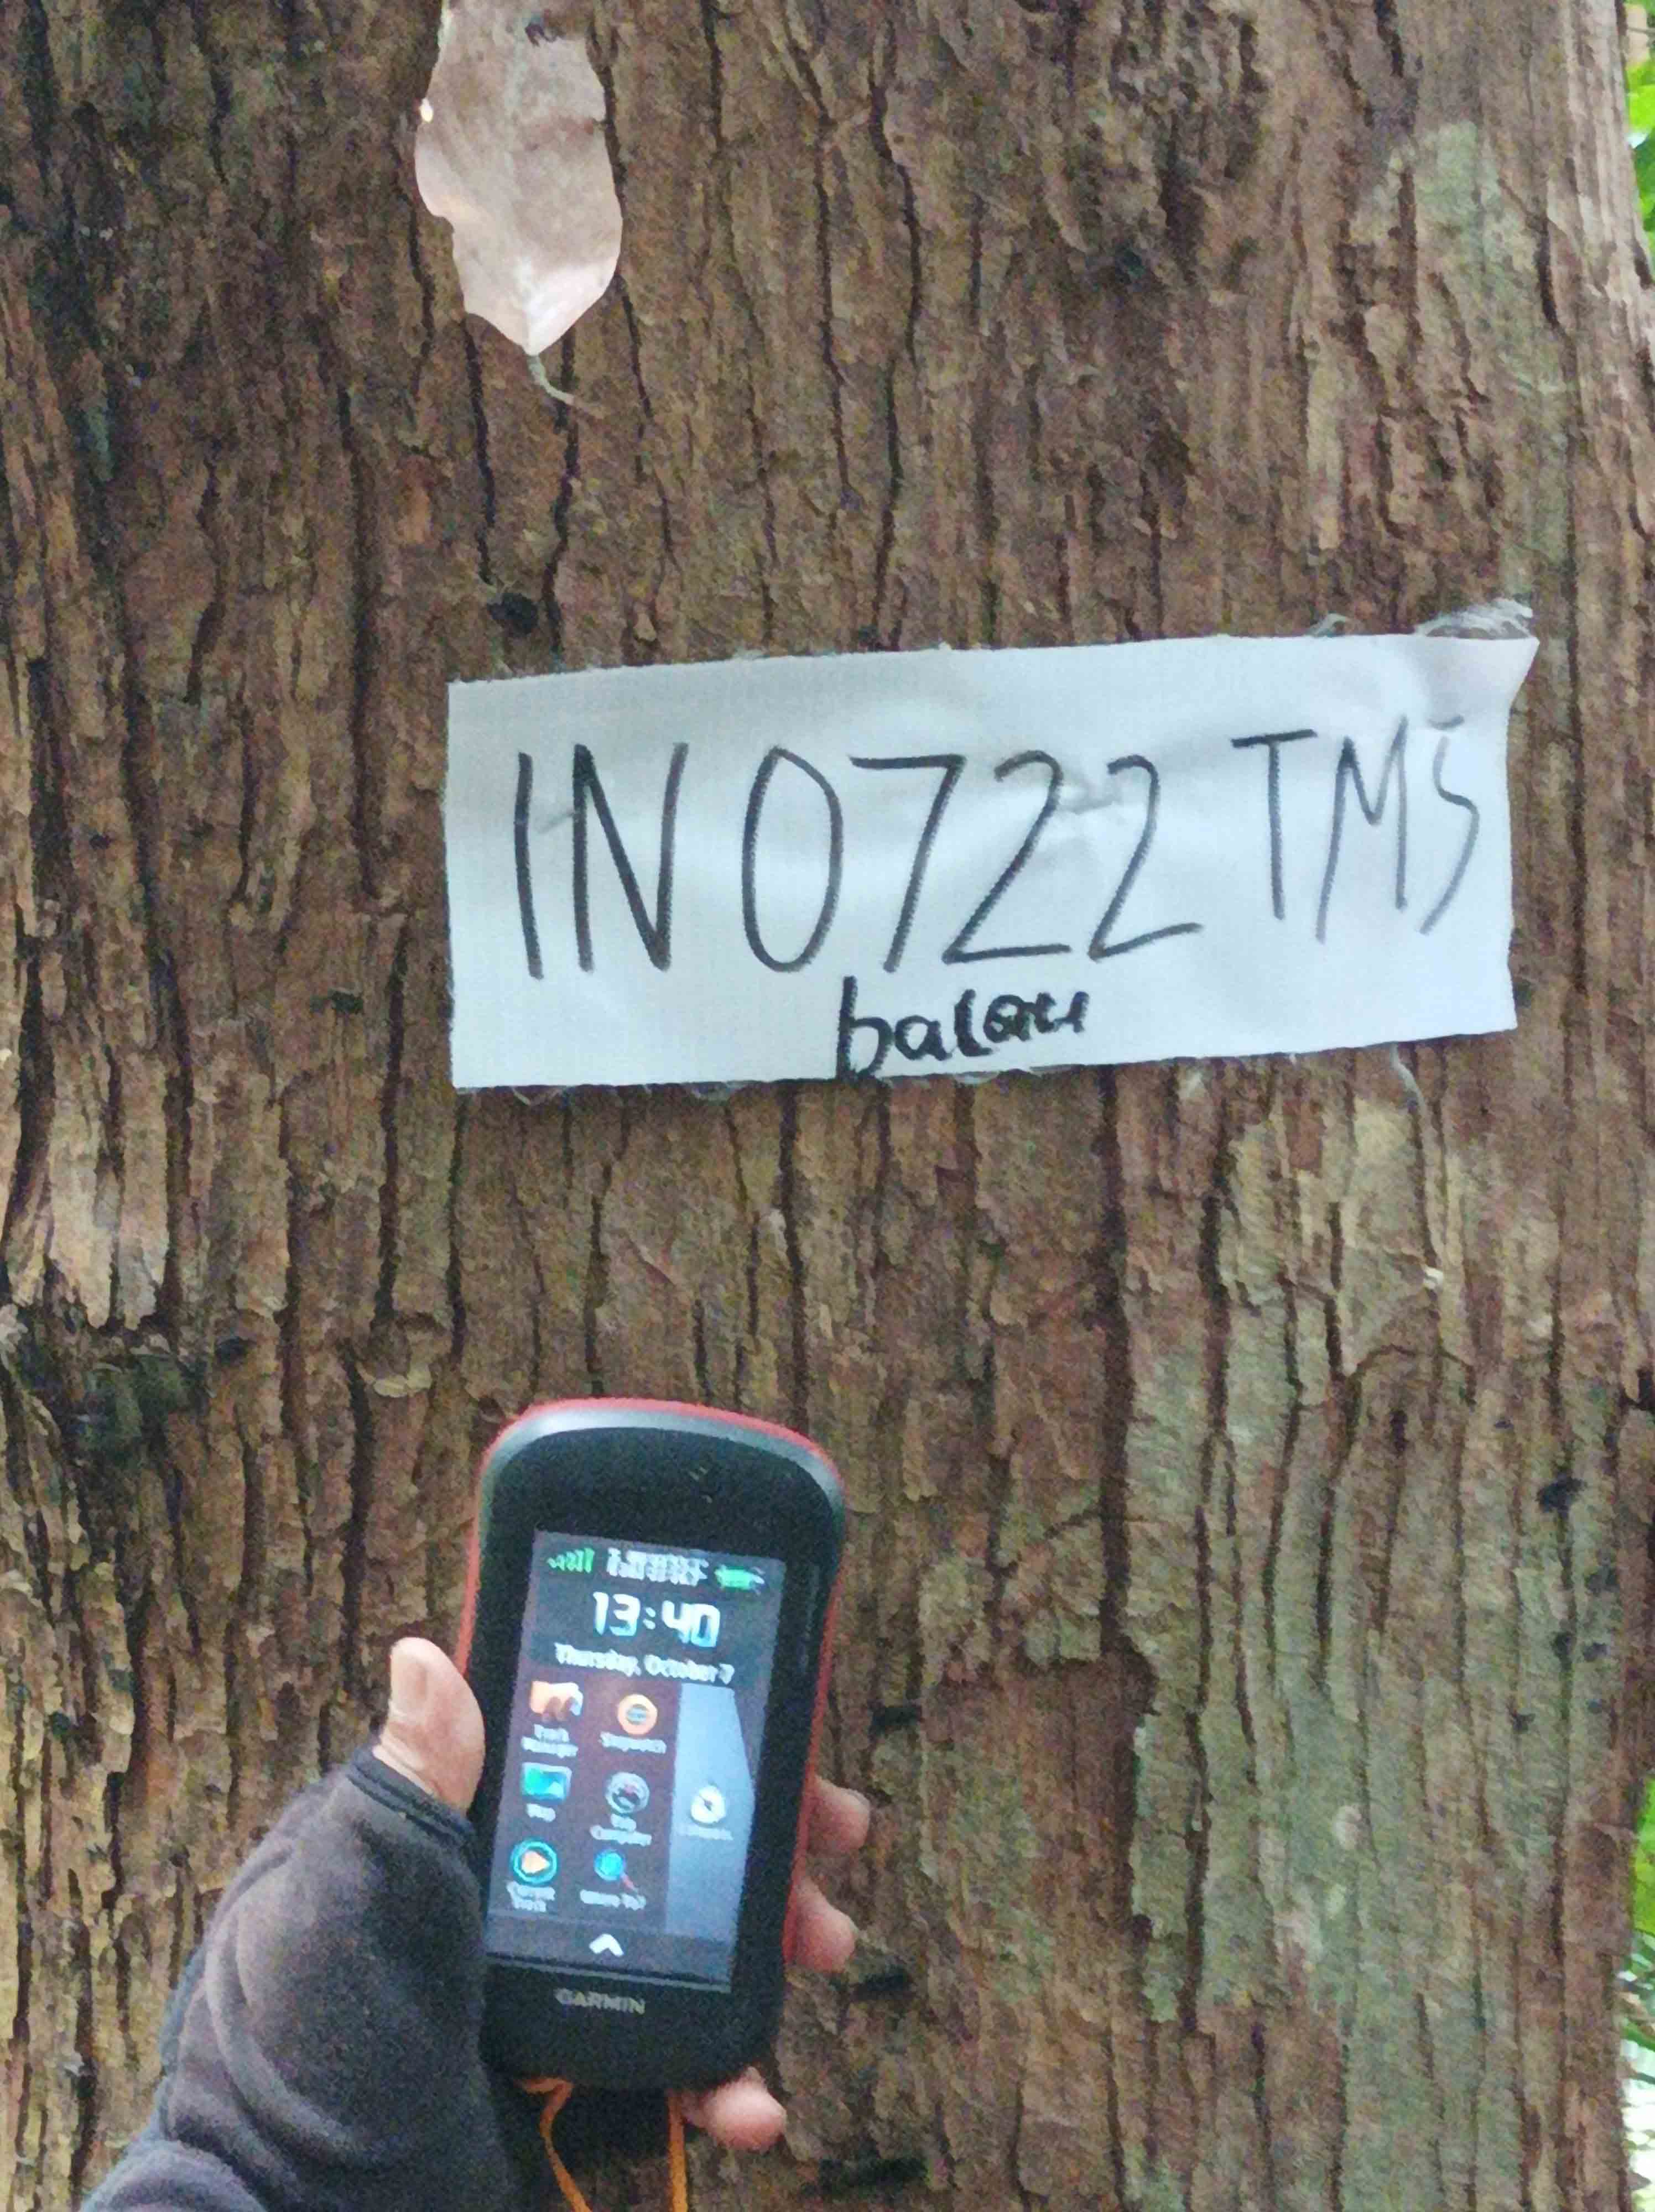 IN 0722 TMS
balau
13:40
Thursday, October 7
Track
Manager
Stopwatch
Map
Trip
Computer
Current
Track
Where To?
GARMIN